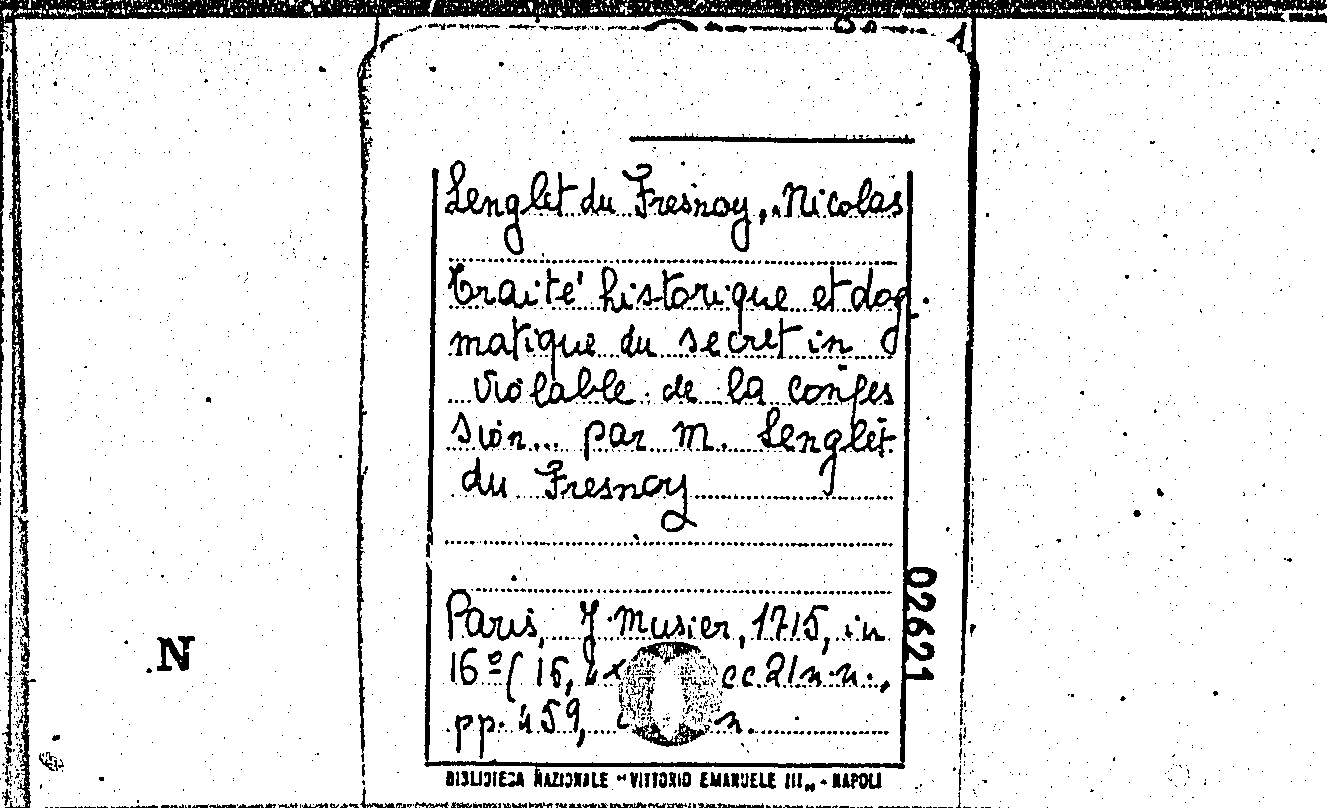 Lenglet du Fresnoy, Nicolas
Traité historique et dog.
matique du secret in
violable de la confes
sion... par m. Lenglet
du Fresnoy
Paris, J. Musier, 1715, in
16º (16, cc 21 n.n.,
pp. 459, n.
02621
N
BIBLIOTECA NAZIONALE "VITTORIO EMANUELE III„ - NAPOLI